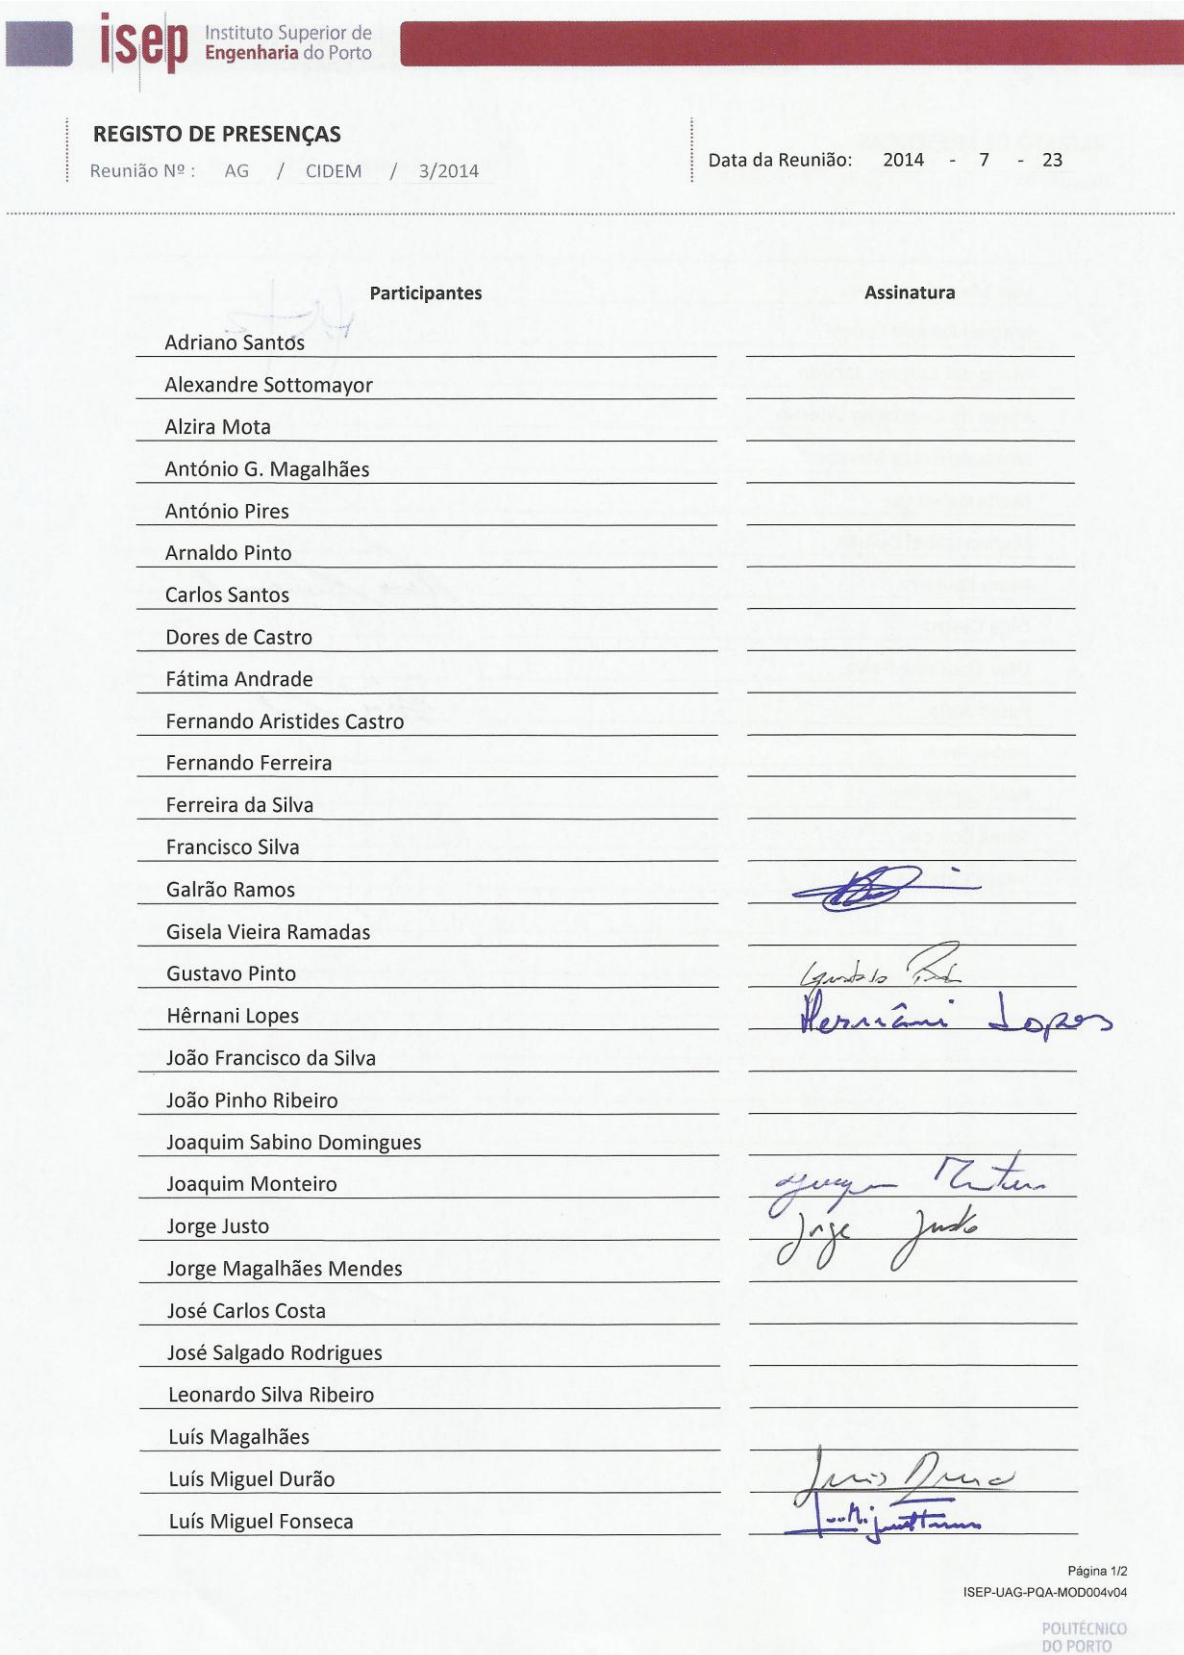 isep Instituto Superior de
Engenharia do Porto
REGISTO DE PRESENÇAS
Reunião Nº : AG / CIDEM / 3/2014
Data da Reunião: 2014 - 7 - 23
Participantes Assinatura
Adriano Santos
Alexandre Sottomayor
Alzira Mota
António G. Magalhães
António Pires
Arnaldo Pinto
Carlos Santos
Dores de Castro
Fátima Andrade
Fernando Aristides Castro
Fernando Ferreira
Ferreira da Silva
Francisco Silva
Galrão Ramos
Gisela Vieira Ramadas
Gustavo Pinto Gustavo Pinto
Hêrnani Lopes Hernâni Lopes
João Francisco da Silva
João Pinho Ribeiro
Joaquim Sabino Domingues
Joaquim Monteiro
Jorge Justo Jorge Justo
Jorge Magalhães Mendes
José Carlos Costa
José Salgado Rodrigues
Leonardo Silva Ribeiro
Luís Magalhães
Luís Miguel Durão Luis
Luís Miguel Fonseca
Página 1/2
ISEP-UAG-PQA-MOD004v04
POLITÉCNICO
DO PORTO